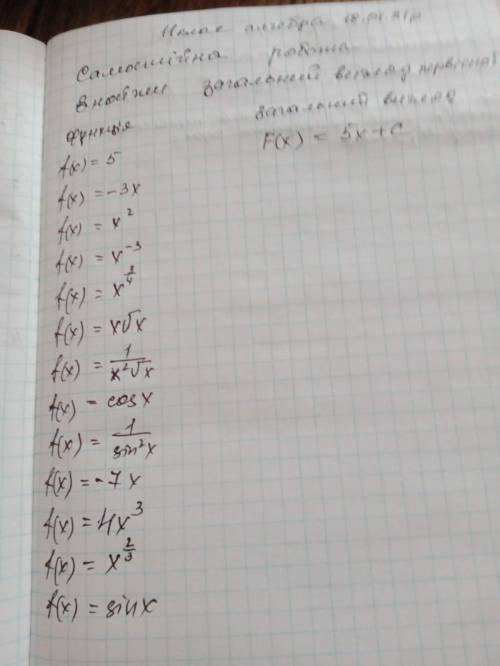 алгебра
Самостійна робота
Знайти загальний вигляд первісної
функція загальний вигляд
f(x) = 5 F(x) = 5x + C
f(x) = -3x
f(x) = x²
f(x) = x⁻³
f(x) = x^(3/4)
f(x) = x√x
f(x) = 1/(x²√x)
f(x) = cos x
f(x) = 1/(sin²x)
f(x) = -7x
f(x) = 4x³
f(x) = x^(2/3)
f(x) = sin x